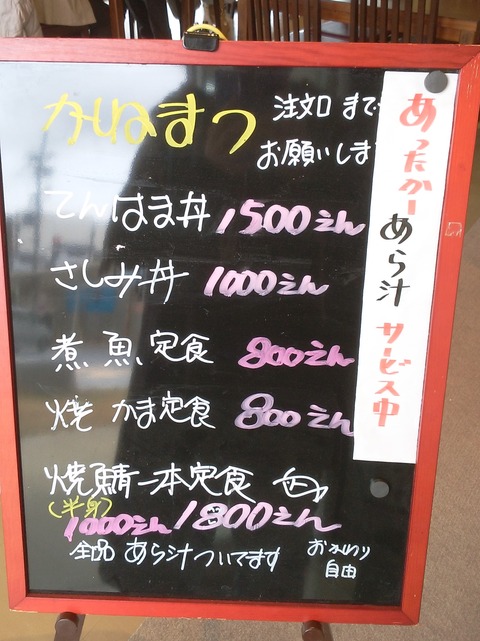 かねまつ
注文口 まで
お願いしま
てんはま丼 1500えん
さしみ丼 1000えん
煮魚定食 800えん
焼かま定食 800えん
焼鯖一本定食
(半身)
1000えん 1800えん
全品 あら汁ついてます
おかわり
自由
あったかーあら汁サービス中